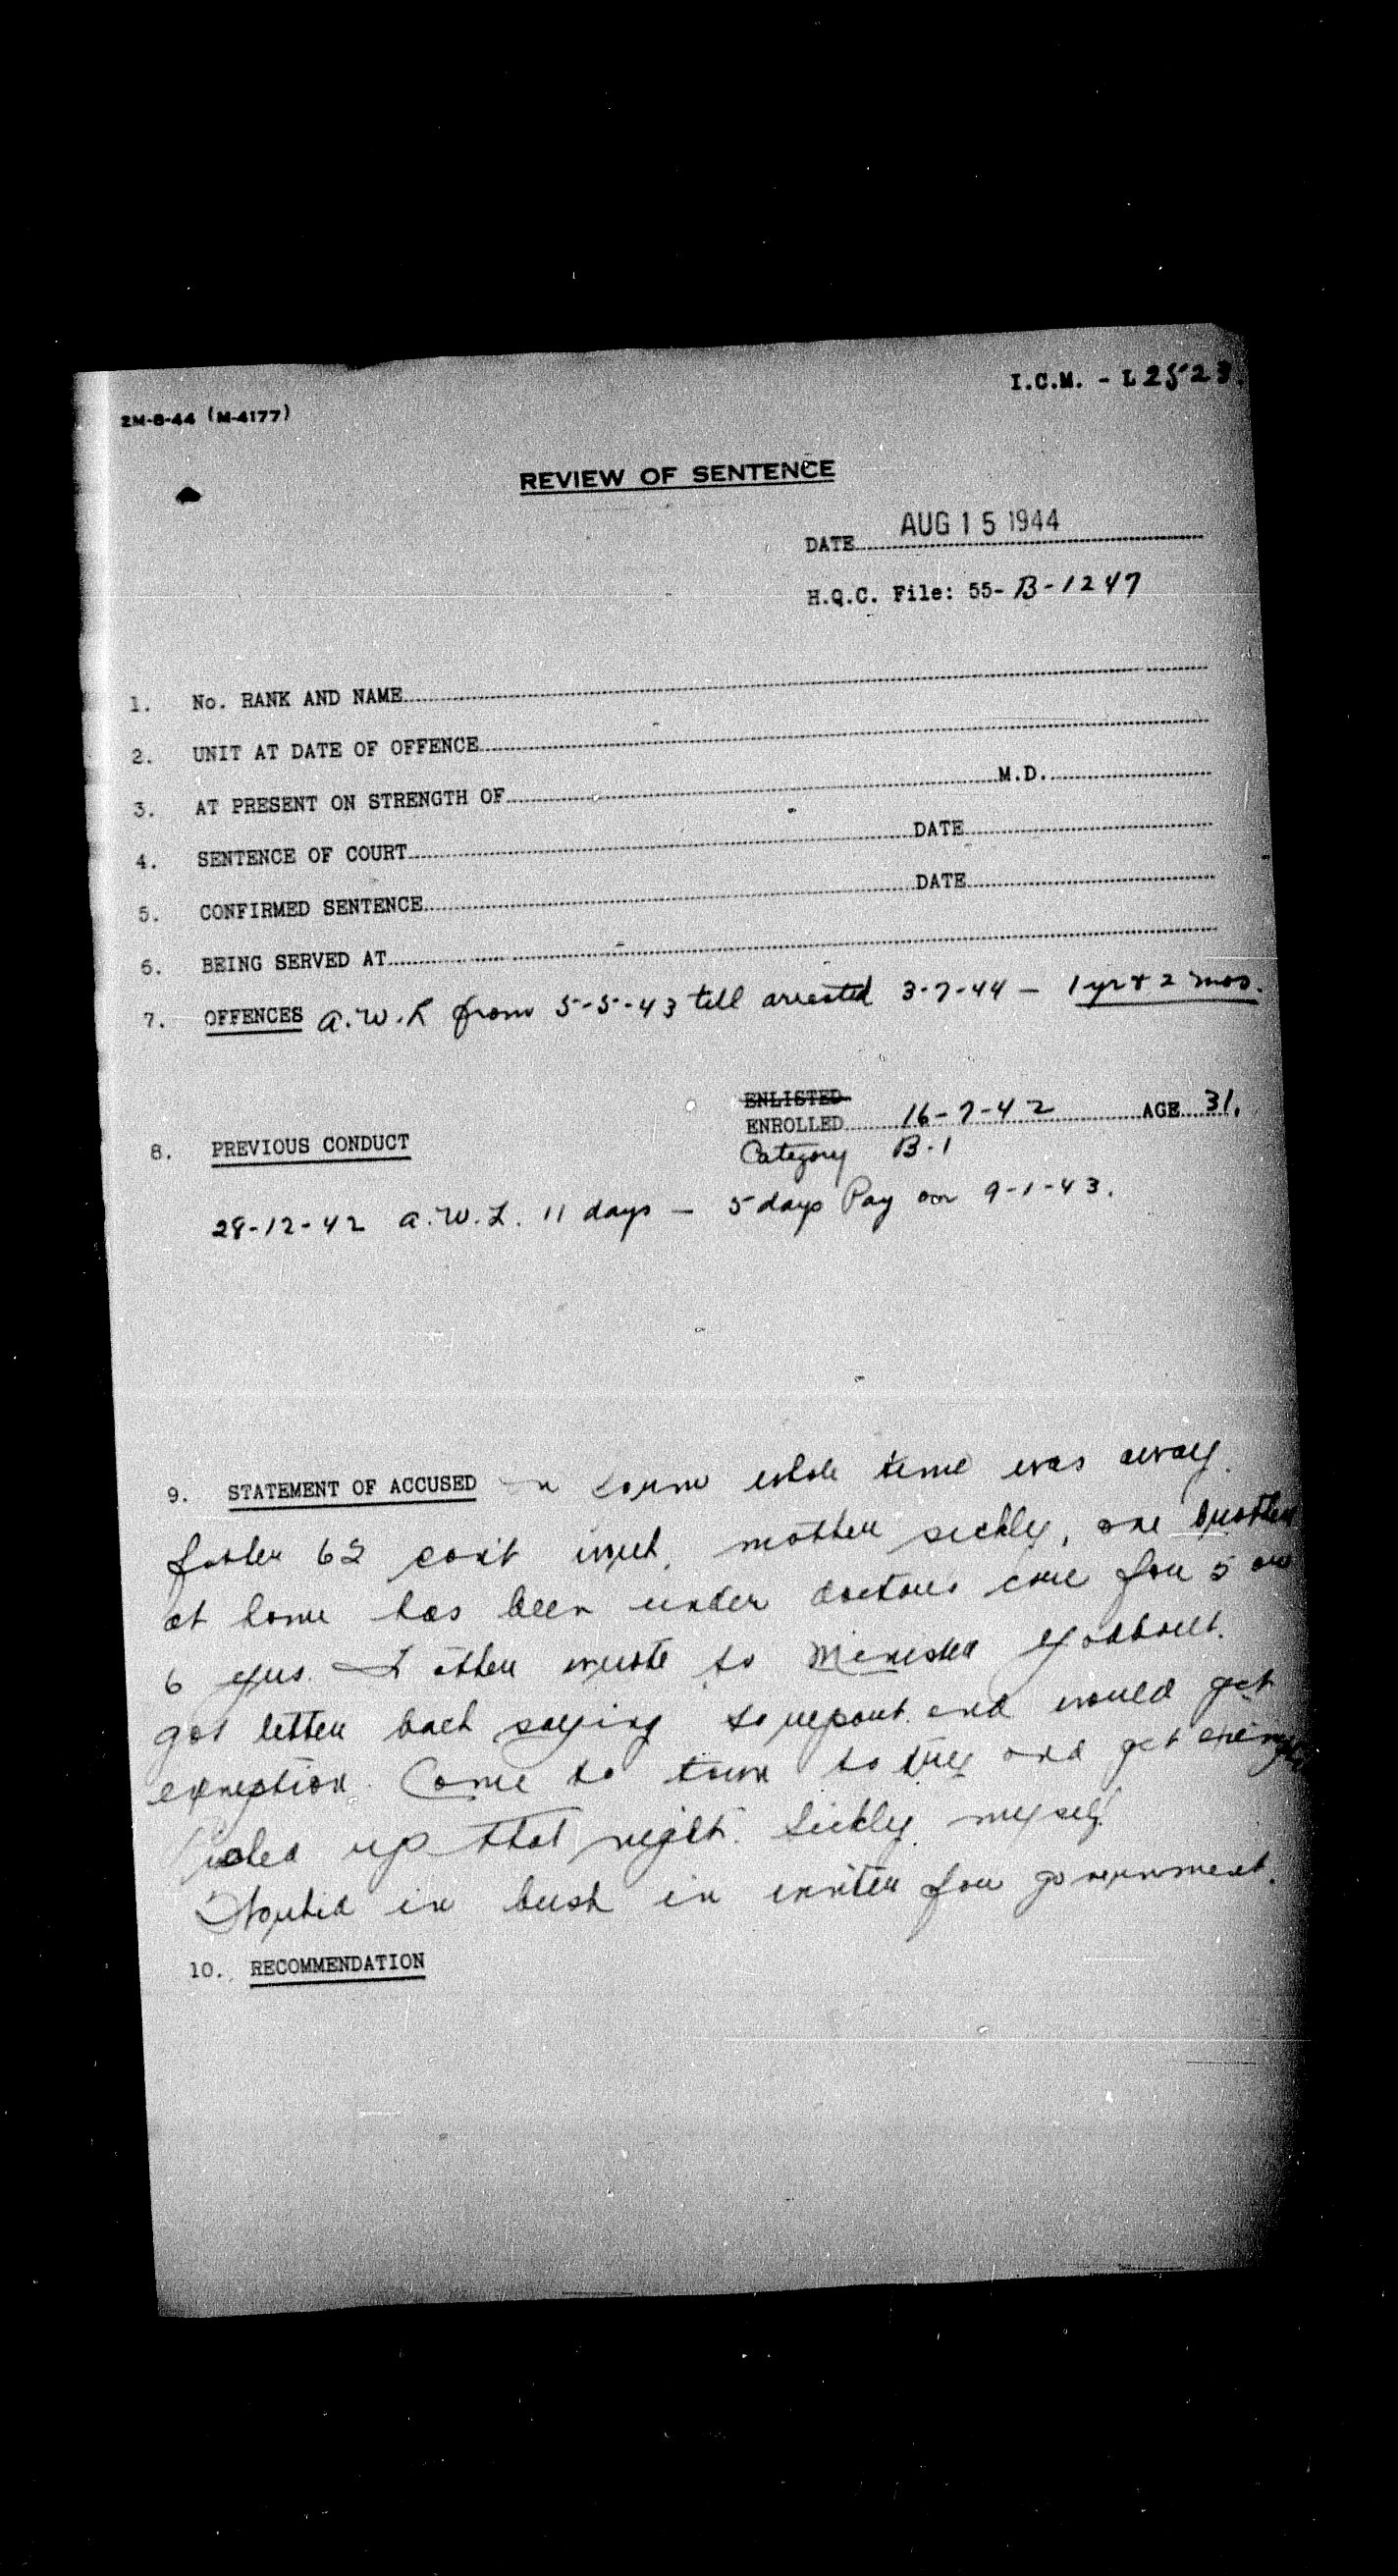 I.C.M. - L2523.
2M-8-44 (M-4177)
REVIEW OF SENTENCE
DATE AUG 15 1944
H.Q.C. File: 55-B-1247
1. No. RANK AND NAME
2. UNIT AT DATE OF OFFENCE
3. AT PRESENT ON STRENGTH OF M.D.
4. SENTENCE OF COURT DATE
5. CONFIRMED SENTENCE DATE
6. BEING SERVED AT
7. OFFENCES A.W.L from 5-5-43 till arrested 3-7-44 — 1 yr & 2 mos.
ENLISTED
ENROLLED 16-7-42 AGE 31.
8. PREVIOUS CONDUCT
Category B-1
28-12-42 A.W.L. 11 days — 5 days Pay on 9-1-43.
9. STATEMENT OF ACCUSED on farm whole time was away.
father 62 can't work, mother sickly, one brother
at home has been under doctors care for 5 or
6 yrs. I then wrote to Minister
got letter back saying to report and would get
exemption. Came to town to try and get
up that night. Sickly myself.
in bush in winter for government.
10. RECOMMENDATION